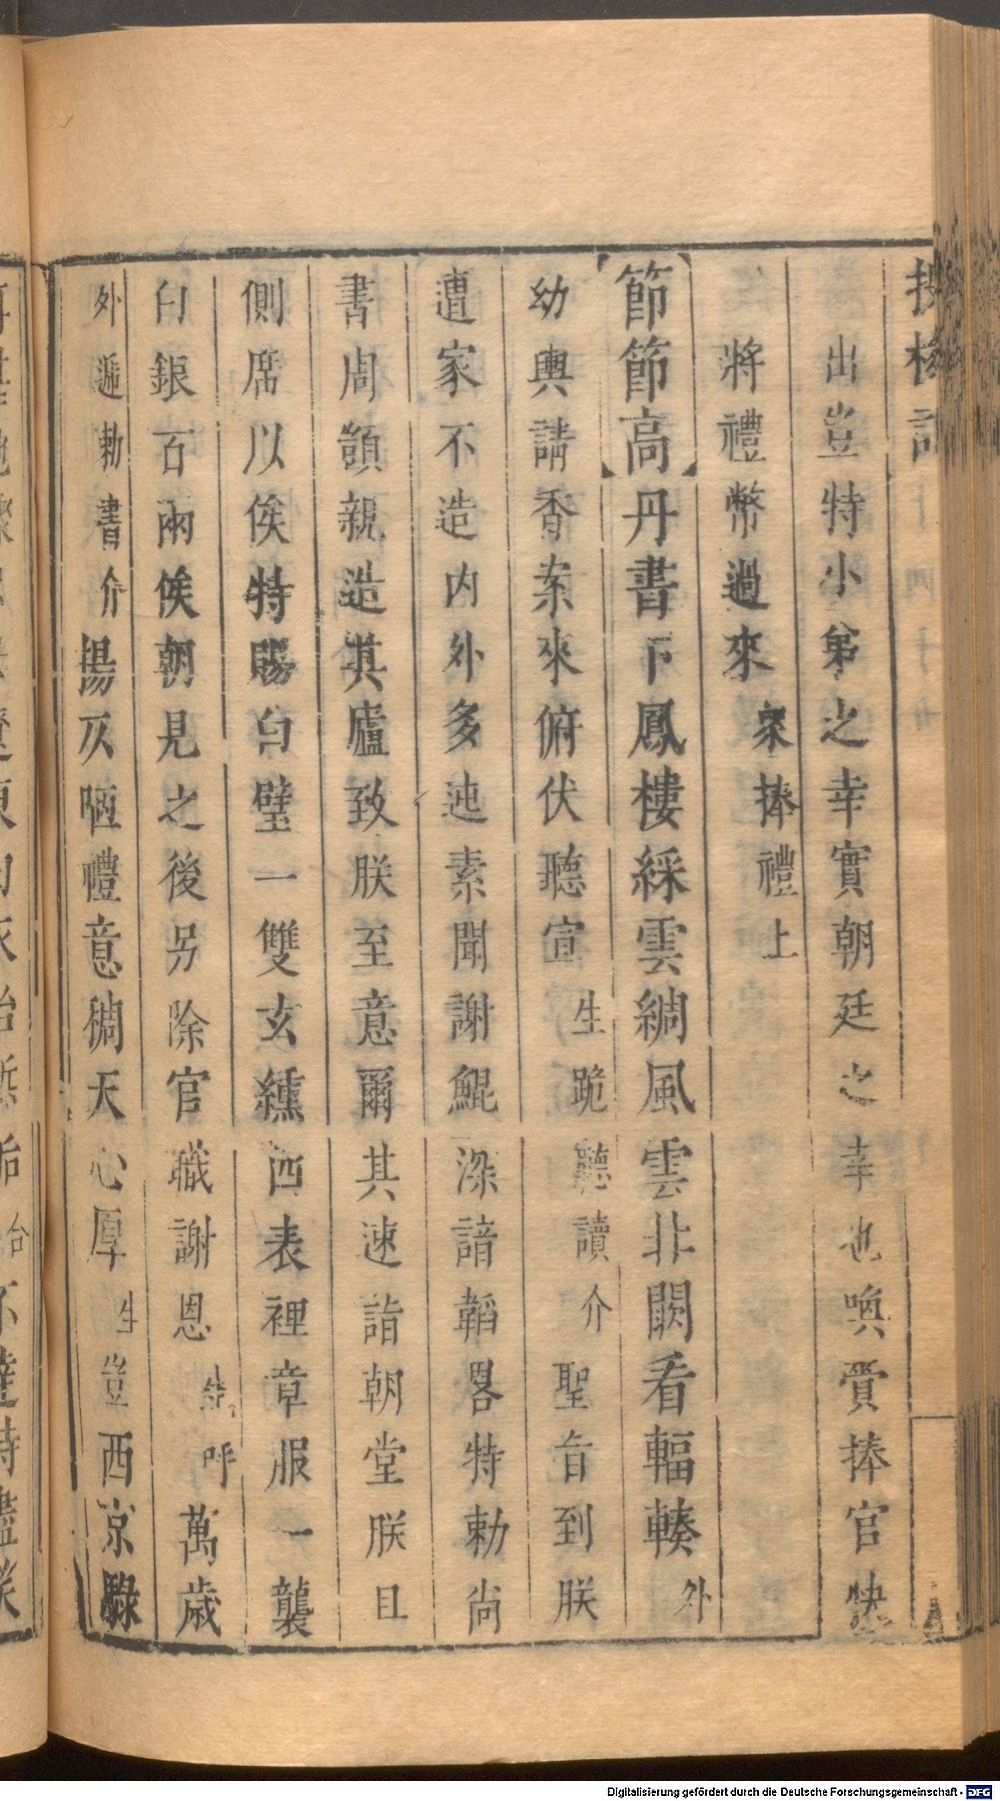 投梭記
出豈特小弟之幸實朝廷之幸也喚賫捧官快
將禮幣過來衆捧禮上
節節高丹書下鳳樓綵雲綢風雲北闕看輻輳外
幼輿請香案來俯伏聽宣生跪聽讀介聖旨到朕
遭家不造内外多迍素聞謝鯤深諳韜畧特勅尚
書周顗親造其廬致朕至意爾其速詣朝堂朕且
側席以俟特賜白璧一雙玄纁四表裡章服一襲
白銀百兩俟朝見之後另除官職謝恩生呼萬歲
外遞勅書介揚仄陋禮意稠天心厚生豈西京騄
Digitalisierung gefördert durch die Deutsche Forschungsgemeinschaft - DFG